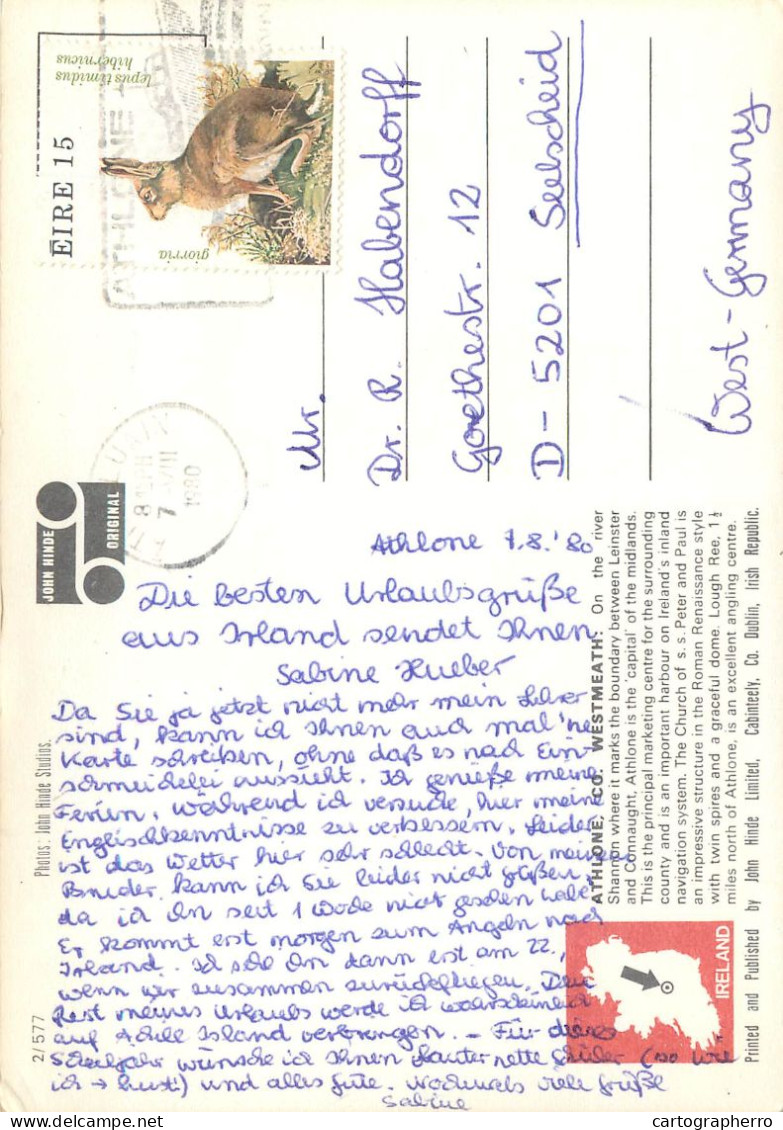 lepus timidus
hibernicus
ÉIRE 15
giorria
ATHLONE
8
7 VIII
1980
JOHN HINDE
ORIGINAL
Mr.
Dr. R. Habendorff
Goethestr. 12
D-5201 Seelscheid
West-Germany
Athlone 7.8.'80
Die besten Urlaubsgrüße
aus Irland sendet Ihnen
Sabine Hueber
Da Sie ja jetzt nicht mehr mein Lehrer
sind, kann ich Ihnen auch mal 'ne
Karte schreiben, ohne daß es nach Ein-
schmeichelei aussieht. Ich genieße meine
Ferien, während ich versuche, hier meine
Englischkenntnisse zu verbessern. Leider
ist das Wetter hier sehr schlecht. Von meinem
Bruder kann ich Sie leider nicht grüßen,
da ich ihn seit 1 Woche nicht gesehen habe.
Er kommt erst morgen zum Angeln nach
Irland. Ich sehe ihn dann erst am 22.,
wenn wir zusammen zurückfliegen. Den
Rest meines Urlaubs werde ich wahrscheinlich
auf Achill Island verbringen. - Für dieses
Schuljahr wünsche ich Ihnen lauter nette Schüler (so wie
ich → hust!) und alles Gute. Nochmals viele Grüße
Sabine
Photos: John Hinde Studios.
2/577
ATHLONE, CO. WESTMEATH: On the river
Shannon where it marks the boundary between Leinster
and Connaught, Athlone is the 'capital' of the midlands.
This is the principal marketing centre for the surrounding
county and is an important harbour on Ireland's inland
navigation system. The Church of s.s. Peter and Paul is
an impressive structure in the Roman Renaissance style
with twin spires and a graceful dome. Lough Ree, 1½
miles north of Athlone, is an excellent angling centre.
IRELAND
Printed and Published by John Hinde Limited, Cabinteely, Co. Dublin, Irish Republic.
cartographerro